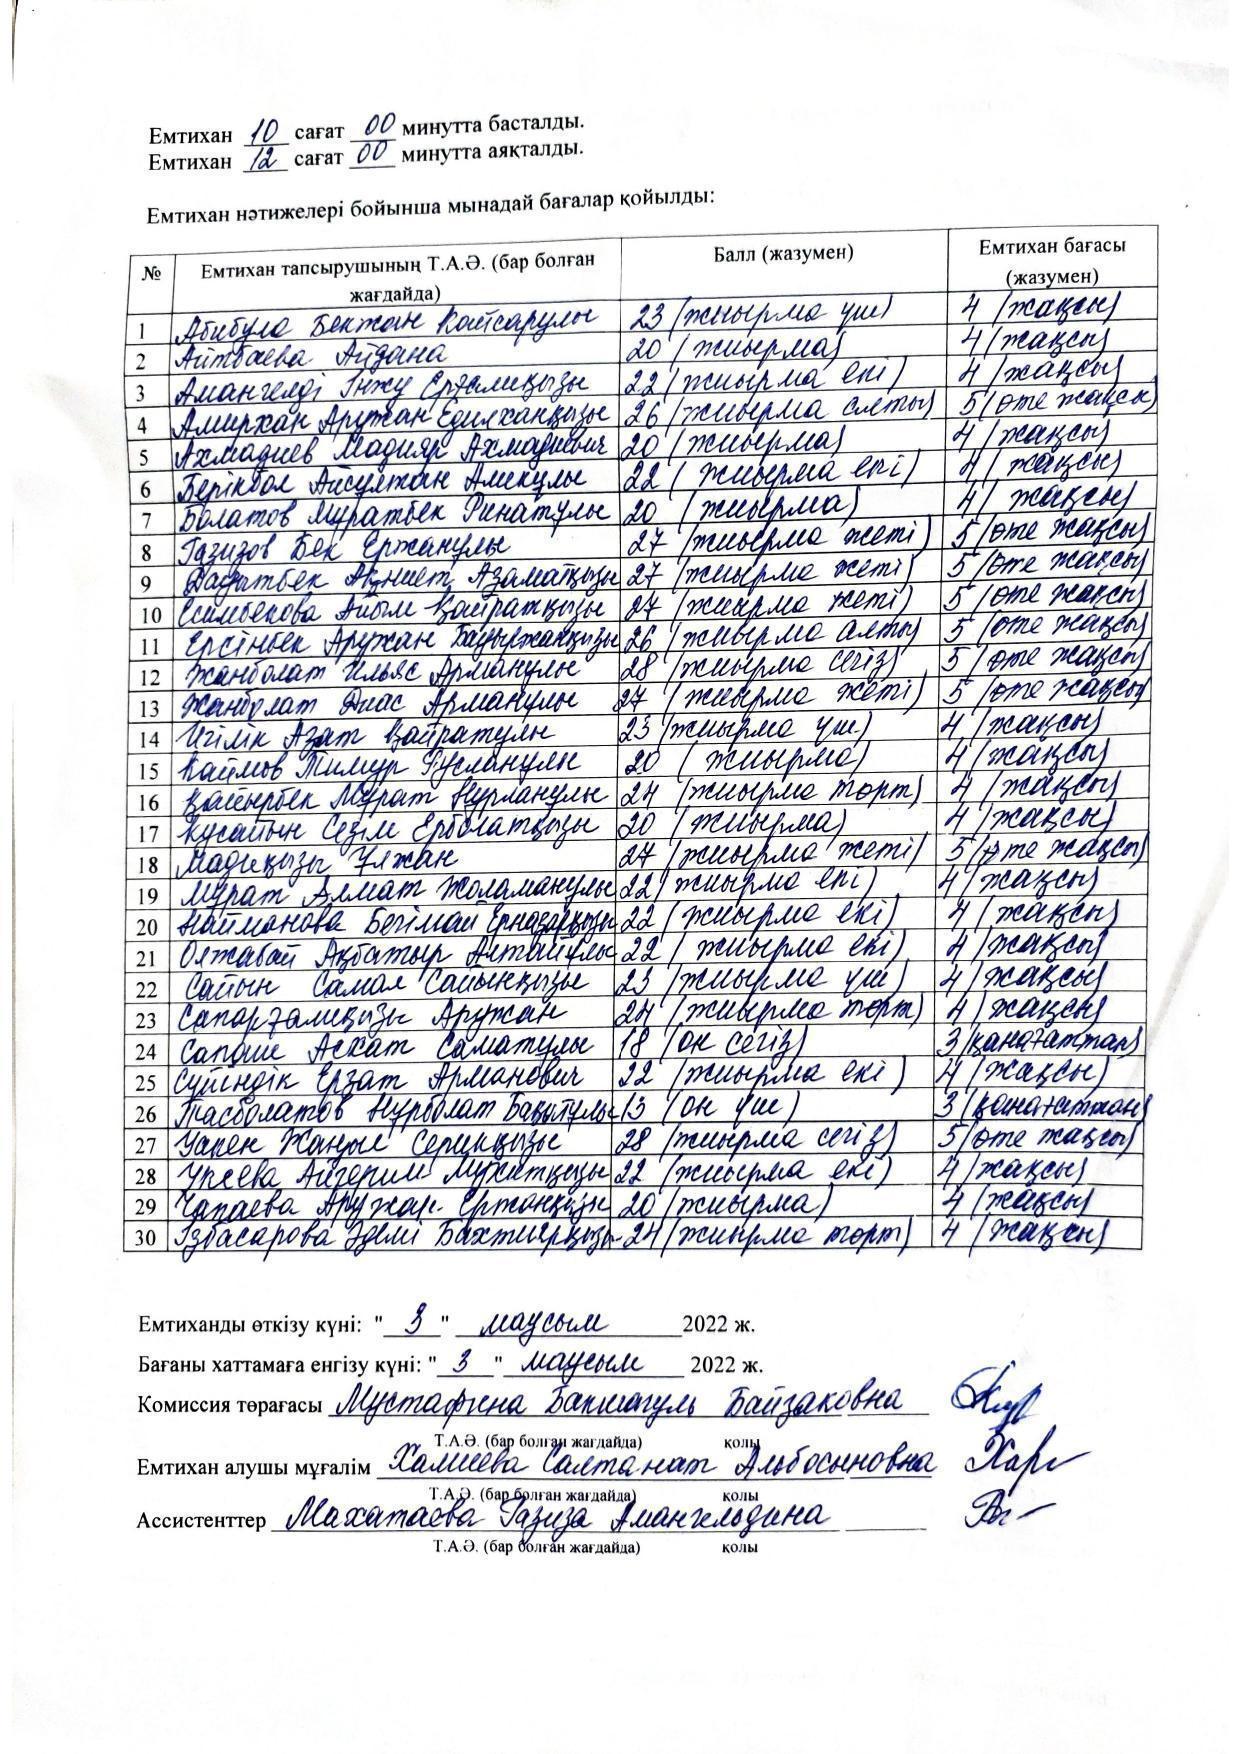 Емтихан 10 сағат 00 минутта басталды.
Емтихан 12 сағат 00 минутта аяқталды.
Емтихан нәтижелері бойынша мынадай бағалар қойылды:
№ Емтихан тапсырушының Т.А.Ә. (бар болған жағдайда) Балл (жазумен) Емтихан бағасы (жазумен)
1 Абибула Бекжан Кайсарулы 23 (жиырма үш) 4 (жақсы)
2 Айтбаева Айдана 20 (жиырма) 4 (жақсы)
3 Амангелді Інжу Ерғалиқызы 22 (жиырма екі) 4 (жақсы)
4 Амирхан Аружан Едилханқызы 26 (жиырма алты) 5 (өте жақсы)
5 Ахмадиев Мадияр Ахмадиевич 20 (жиырма) 4 (жақсы)
6 Берікбол Айсұлтан Аликулы 22 (жиырма екі) 4 (жақсы)
7 Болатов Муратбек Ринатұлы 20 (жиырма) 4 (жақсы)
8 Газизов Бек Ержанұлы 27 (жиырма жеті) 5 (өте жақсы)
9 Ақниет Азаматқызы 27 (жиырма жеті) 5 (өте жақсы)
10 Есимбекова Айым Қайратқызы 27 (жиырма жеті) 5 (өте жақсы)
11 Ерсінбек Аружан Бауыржанқызы 26 (жиырма алты) 5 (өте жақсы)
12 Жанболат Ильяс Арманұлы 28 (жиырма сегіз) 5 (өте жақсы)
13 Жанболат Диас Арманұлы 27 (жиырма жеті) 5 (өте жақсы)
14 Игілік Азат Қайратұлы 23 (жиырма үш) 4 (жақсы)
15 Каймов Тимур Русланұлы 20 (жиырма) 4 (жақсы)
16 Қайырбек Мұрат Нұрланұлы 24 (жиырма төрт) 4 (жақсы)
17 Құсайын Сезім Ерболатқызы 20 (жиырма) 4 (жақсы)
18 Мадиқызы Ұлжан 27 (жиырма жеті) 5 (өте жақсы)
19 Мұрат Алмат Жоламанұлы 22 (жиырма екі) 4 (жақсы)
20 Найманова Бегімай Ерназарқызы 22 (жиырма екі) 4 (жақсы)
21 Олжабай Ақбатыр Алтайұлы 22 (жиырма екі) 4 (жақсы)
22 Сайын Самал Сайынқызы 23 (жиырма үш) 4 (жақсы)
23 Сапарғалиқызы Аружан 24 (жиырма төрт) 4 (жақсы)
24 Асхат Саматулы 18 (он сегіз) 3 (қанағаттан)
25 Сүйіндік Ерзат Арманович 22 (жиырма екі) 4 (жақсы)
26 Тасболатов Нұрболат Бақытұлы 13 (он үш) 3 (қанағаттан)
27 Уапен Жаныл Сериққызы 28 (жиырма сегіз) 5 (өте жақсы)
28 Айгерим Мұхитқызы 22 (жиырма екі) 4 (жақсы)
29 Чапаева Аружан Ертанқызы 20 (жиырма) 4 (жақсы)
30 Ізбасарова Әделі Бахтиярқызы 24 (жиырма төрт) 4 (жақсы)
Емтиханды өткізу күні: "3" маусым 2022 ж.
Бағаны хаттамаға енгізу күні: "3" маусым 2022 ж.
Комиссия төрағасы Мустафина Бакшагуль Байзаковна
Т.А.Ә. (бар болған жағдайда) қолы
Емтихан алушы мұғалім Халиева Салтанат Альбосыновна
Т.А.Ә. (бар болған жағдайда) қолы
Ассистенттер Махатаева Газиза Амангельдина
Т.А.Ә. (бар болған жағдайда) қолы